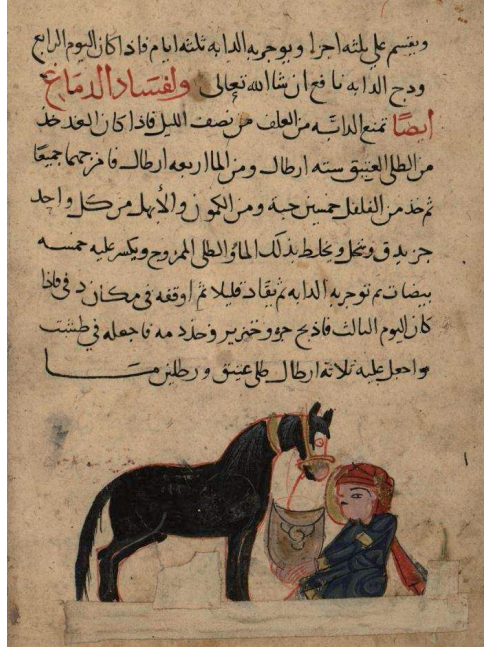 ويقسم على ثلثه اجزا ويوجر به الدابه ثلثه ايام فاذا كان اليوم الرابع
ودج الدابه نافع ان شا الله تعالى ولفساد الدماغ
ايضًا تمنع الدابَّه من العلف من نصف الليل فاذا كان الغد خذ
من الطلى العتيق سته ارطال ومن الما اربعه ارطال فامزجهما جميعًا
ثم خذ من الفلفل خمسين حبه ومن الكمون والأبهل من كل واحد
جز يدق وينخل ويخلط بذلك الما والطلى الممزوج ويكسر عليه خمسه
بيضات ثم توجر به الدابه ثم يقاد قليلا ثم اوقفه في مكان دفى فاذا
كان اليوم الثالث فاذبح جرو خنزير وخذ دمه فاجعله في طشت
واجعل عليه ثلاثه ارطال طلى عتيق ورطلين مـــا